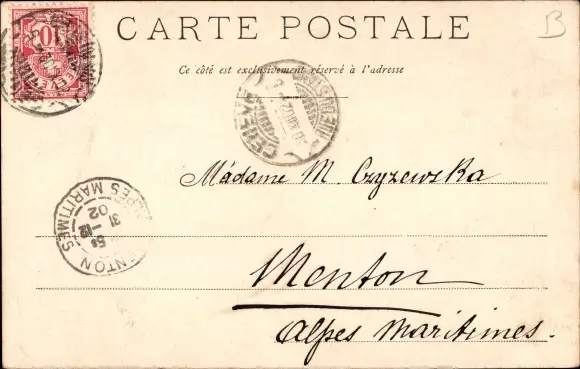 B
CARTE POSTALE
Ce côté est exclusivement réservé à l'adresse
10
GENÈVE
Madame M. Czyzewska
MENTON
ALPES MARITIMES
5E
31 -12
02
Menton
Alpes Maritimes.